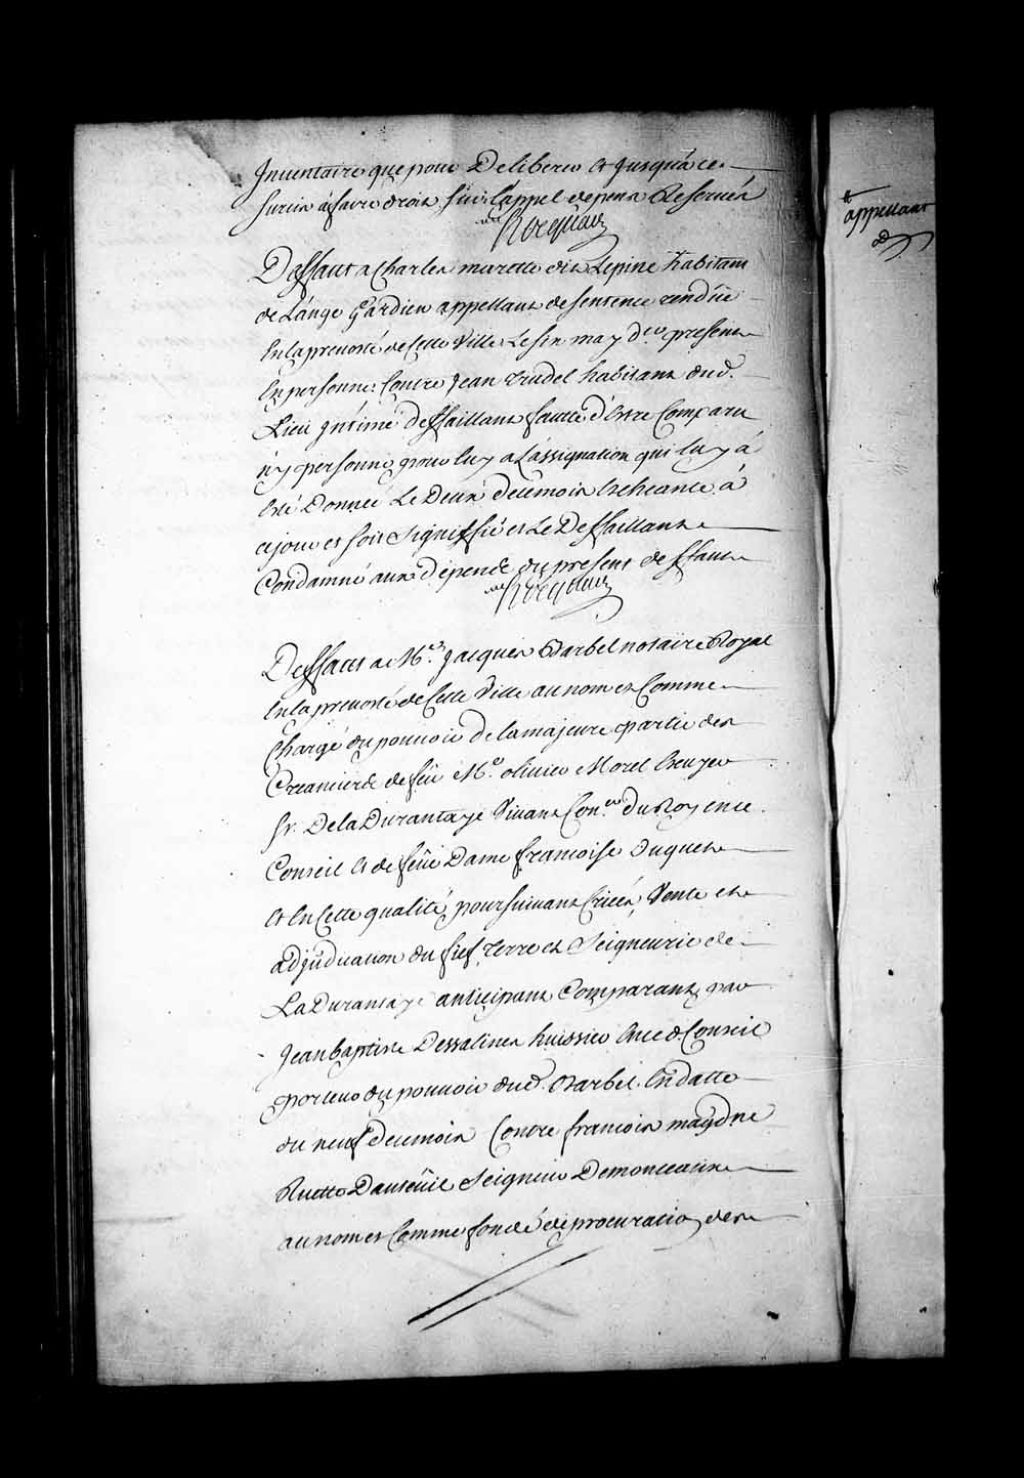 Inuentaire que pour Deliberer Et Jusqua ce
surcis a faire droit sur l'appel depens Reserués
Deffaut a Charles marette dit Lepine habitant
de L'ange Gardien appellant de sentence rendüe
En la preuosté de Cette Ville Le six may d.er present
En personne; Contre Jean trudel habitant dud.
Lieu Intimé Deffaillant faute d'Estre Comparu
n'y personne pour luy a L'assignation qui luy a
Esté Donnée Le Deux de ce mois Escheante à
ce jour et soit Signiffié et Le Deffaillant
Condamné aux depends du present deffaut
Deffaut a M.e Jacques Barbel notaire Royal
En la preuosté de Cette Ville au nom et Comme
Chargé du pouuoir de la majeure partie des
Creanciers de feu M.e oliuier Morel Escuyer
Sr. De la Durantaye Viuant Con.er du Roy en ce
Conseil Et de feüe Dame francoise Duquet
Et En Cette qualité poursuiuant Criées, Vente et
adjudication du fief, terre et Seigneurie de
La Durantaye anticipant Comparant par
Jean baptiste Dessalines huissier En ce d. Conseil
porteur du pouuoir dud. Barbel En datte
du neuf de ce mois Contre francois magd.ne
Ruette Dauteüil Seigneur Demonceaux
au nom et Comme fondé de procuration des
appellant